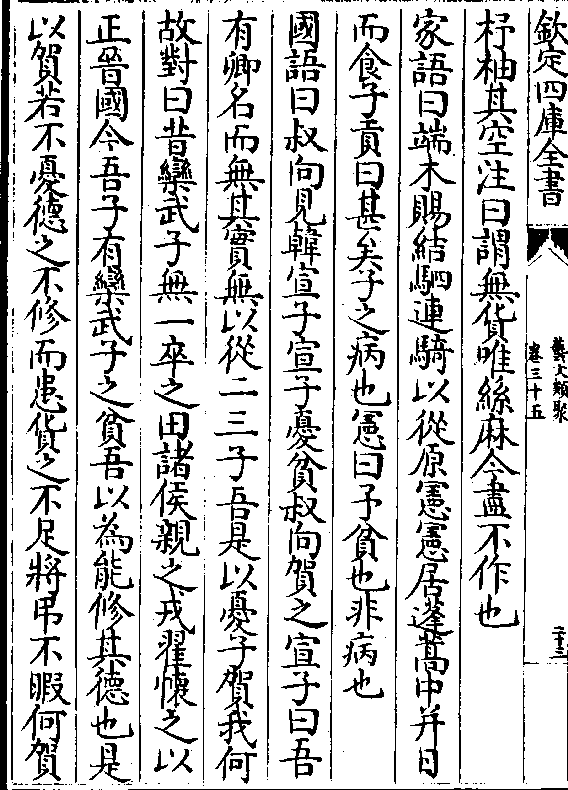 欽定四庫全書
藝文類聚
卷三十五
二十三
杼柚其空注曰謂無貨唯絲麻今盡不作也
家語曰端木賜結駟連騎以從原憲憲居蓬蒿中并日
而食子貢曰甚矣子之病也憲曰予貧也非病也
國語曰叔向見韓宣子宣子憂貧叔向賀之宣子曰吾
有卿名而無其實無以從二三子吾是以憂子賀我何
故對曰昔欒武子無一卒之田諸侯親之戎翟懷之以
正晉國今吾子有欒武子之貧吾以為能修其德也是
以賀若不憂德之不修而患貨之不足將弔不暇何賀